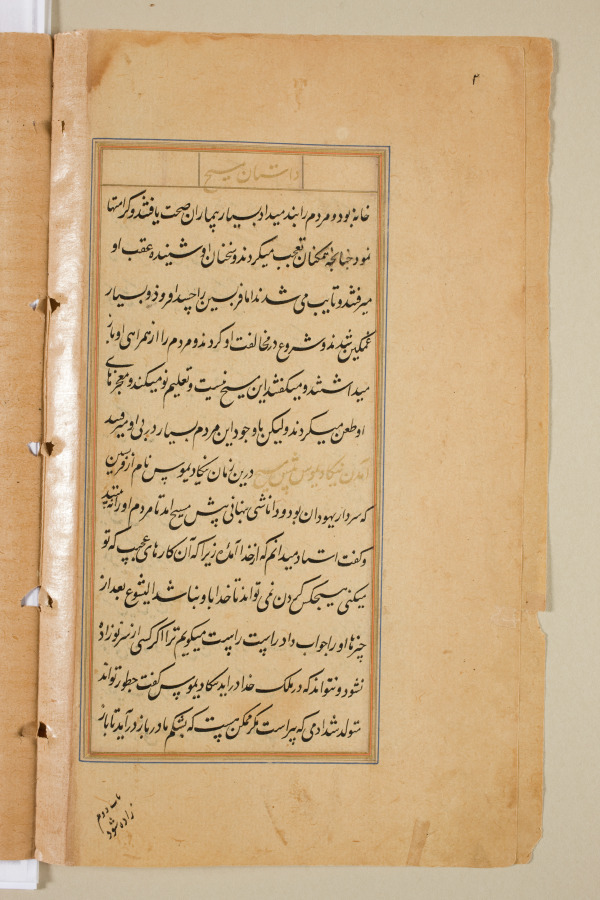 ۳
داستان مسیح
خانه بود و مردم را پند میداد بسیار بیماران صحت یافتند و کرامتها
نمود چنانچه همکنان تعجب میکردند و سخنان او شنیده عقب او
میرفتند و تایب می شدند اما فریسین را حسد افزود و بسیار
غمگین شدند و شروع در مخالفت او کردند و مردم را از همراهی او باز
میداشتند و میگفتند این مسیح نیست و تعلیم نو میکند و معجزهای
او طعن میکردند ولیکن باوجود این مردم بسیار در پی او میرفتند
آمدن نیکادیموس پیش مسیح درین زمان نیکادیموس نام از فریسین
که سردار یهودان بود و دانا شبی پنهانی پیش مسیح آمد تا مردم او را نه بینند
و گفت استاد میدانم که از خدا آمدهٔ زیرا که آن کارهای عجیب که تو
میکنی هیچکس کردن نمی تواند تا خدا با و نباشد ایشوع بعد از
چیزها او را جواب داد راست راست میگویم ترا اگر کسی از سر نو زاده
نشود و نتواند که در ملک خدا در آید نیکادیموس گفت چطور تواند
متولد شد آدمی که پیر است مگر ممکن هست که بشکم مادر باز در آید تا باز
باب دوم
زاده شود